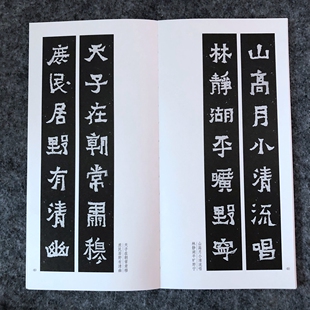 山高月小清流唱
林靜湖平曠野寧
天子在朝常肅穆
庶民居野有清幽